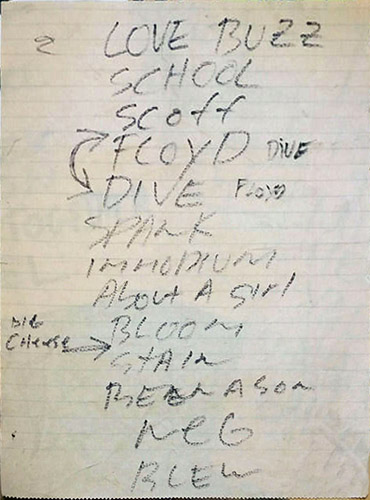 2 LOVE BUZZ
SCHOOL
SCOFF
FLOYD DIVE
DIVE FLOYD
SPANK
IMMODIUM
ABOUT A GIRL
BIG
CHEESE
BLOOM
STAIN
BEEN A SON
NEG
BLEW